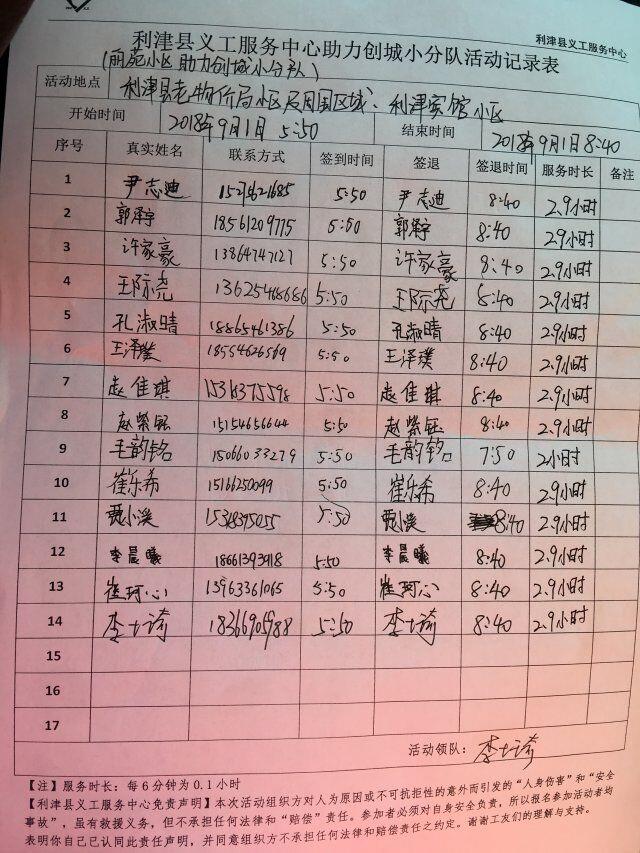 利津县义工服务中心
利津县义工服务中心助力创城小分队活动记录表
(丽苑小区助力创城小分队)
活动地点 利津县老物价局小区及周围区域、利津宾馆小区
开始时间 2018年9月1日 5:50 结束时间 2018年9月1日8:40
序号 真实姓名 联系方式 签到时间 签退 签退时间 服务时长 备注
1 尹志迪 15275621685 5:50 尹志迪 8:40 2.9小时
2 郭泽宇 18561209775 5:50 郭泽宇 8:40 2.9小时
3 许家豪 13864747127 5:50 许家豪 8:40 2.9小时
4 王际尧 13625468686 5:50 王际尧 8:40 2.9小时
5 孔淑晴 18865461386 5:50 孔淑晴 8:40 2.9小时
6 王泽璞 18554626569 5:50 王泽璞 8:40 2.9小时
7 赵佳琪 15318375598 5:50 赵佳琪 8:40 2.9小时
8 赵紫钰 15154656644 5:50 赵紫钰 8:40 2.9小时
9 毛韵铭 15066033279 5:50 毛韵铭 7:50 2小时
10 崔乐希 15166250099 5:50 崔乐希 8:40 2.9小时
11 贾小溪 15318395055 5:50 贾小溪 8:40 2.9小时
12 李晨曦 18661393918 5:50 李晨曦 8:40 2.9小时
13 崔珂心 13963361065 5:50 崔珂心 8:40 2.9小时
14 李士琦 18366905988 5:50 李士琦 8:40 2.9小时
15
16
17
活动领队：李士琦
【注】服务时长：每6分钟为0.1小时
【利津县义工服务中心免责声明】本次活动组织方对人为原因或不可抗拒性的意外而引发的“人身伤害”和“安全
事故”，虽有救援义务，但不承担任何法律和“赔偿”责任。参加者必须对自身安全负责，所以报名参加活动者均
表明你自己已认同此责任声明，并同意组织方不承担任何法律和赔偿责任之约定。谢谢工友们的理解与支持。